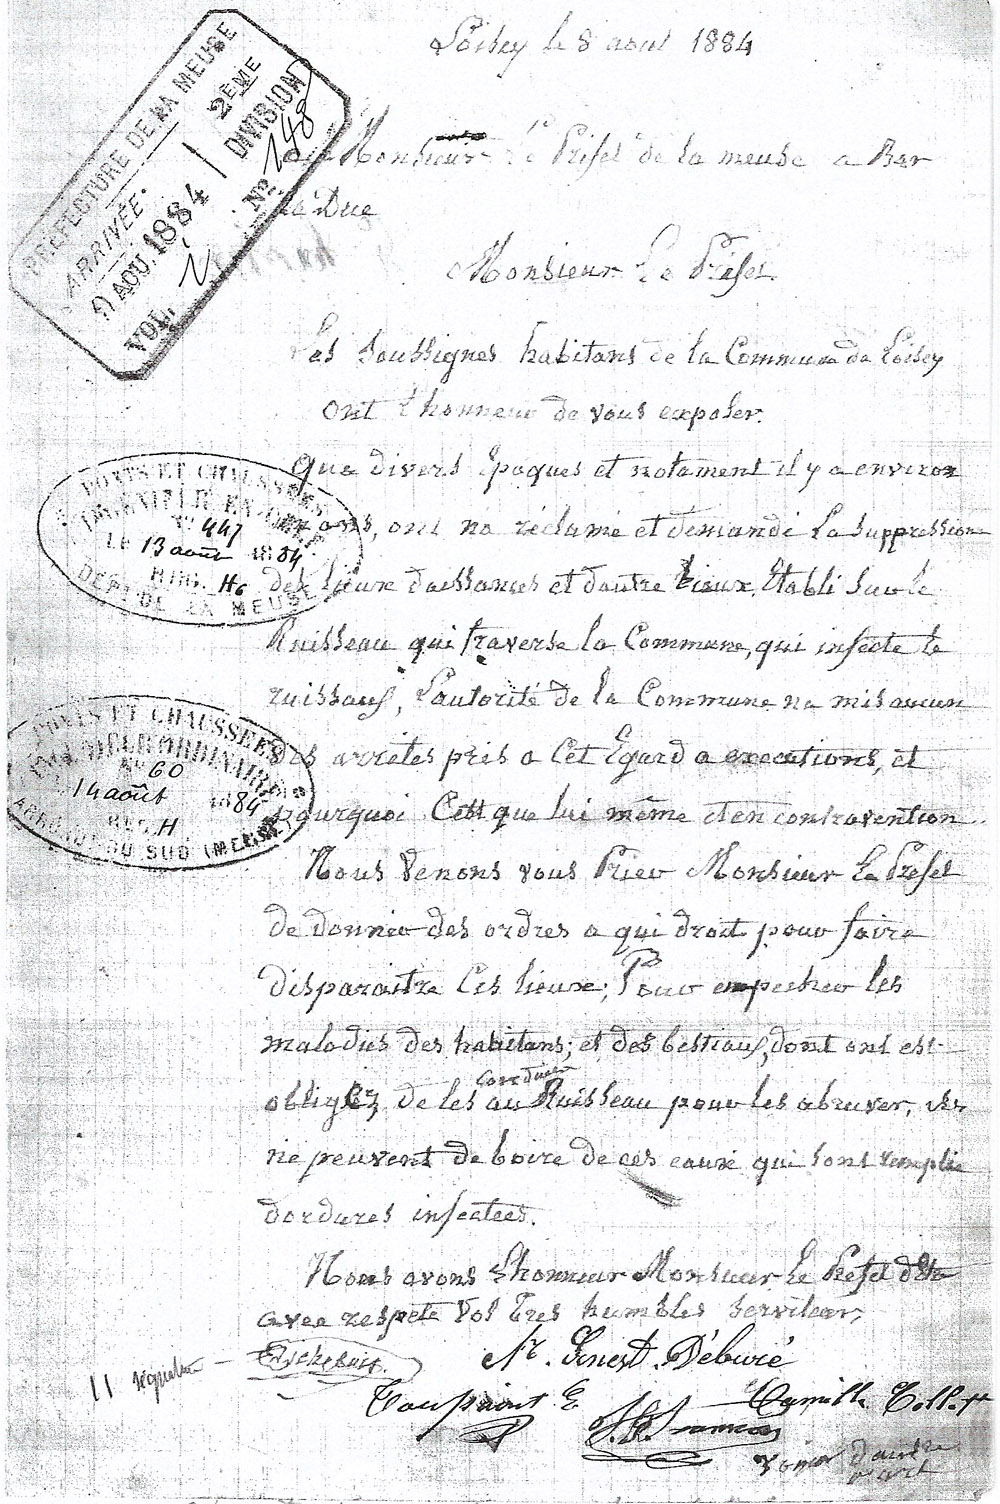 Loisey le 8 aout 1884
PREFECTURE DE LA MEUSE
ARRIVÉE
2EME DIVISION
9 AOU. 1884
VOL.
No 148
Monsieur Le Prefet de la meuse a Bar
le Duc
Monsieur Le Préfet
Les Soussignes habitans de la Commune de Loisey
ont l'honneur de vous exposer.
Que divers Epoques et notament il y a environ
ans, ont na réclamé et demandé La Suppression
des lieux daissances et dautre lieux, Etabli Sur le
Ruisseau qui traverse la Commune, qui infecte le
ruissaux, L'autorité de la Commune na mis aucun
des arrêtes pris a Cet Egard a execcutions, et
pourquoi Cett que lui même et en contravention.
Nous Venons vous Prier Monsieur Le Préfet
de donner des ordres a qui droit pour faire
disparaitre Ces lieux; Pour empecher les
maladies des habitans; et des bestiaux, dont ont est
conduire
obligez de les au Ruisseau pour les abruver,
ne peuvent de boire de ces eaux qui sont remplie
dordures infectees.
Nous avons L'honneur Monsieur le Préfet
avec respete Vos très humbles serviteur,
PONTS ET CHAUSSÉES
INGÉNIEUR EN CHEF
No 447
LE 13 août 1884
DEPt DE LA MEUSE
PONTS ET CHAUSSÉES
INGÉNIEUR ORDINAIRE
No 60
14 août 1884
REG. H
ARROND. DU SUD (MEUSE)
Ernest Déburé
Toupriant E
Camille Collot
11